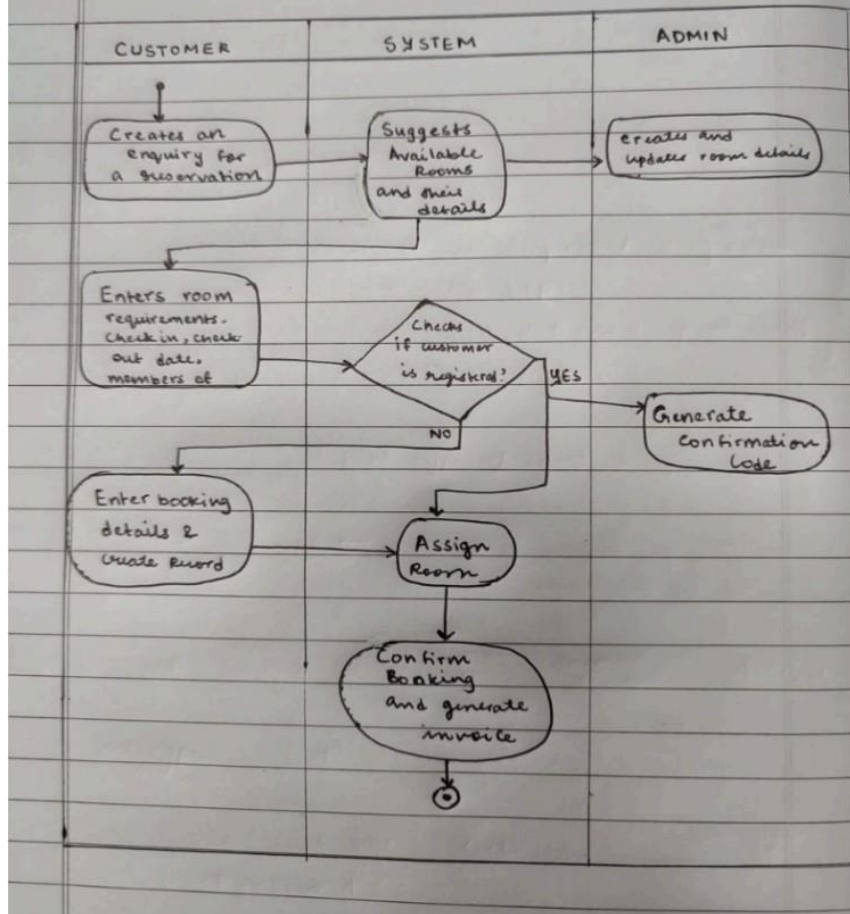 CUSTOMER
SYSTEM
ADMIN
Creates an
enquiry for
a reservation
Suggests
Available
Rooms
and their
details
creates and
updates room details
Enters room
requirements.
Check in, check
out date,
members of
Checks
if customer
is registered?
YES
NO
Generate
Confirmation
Code
Enter booking
details &
create record
Assign
Room
Confirm
Booking
and generate
invoice